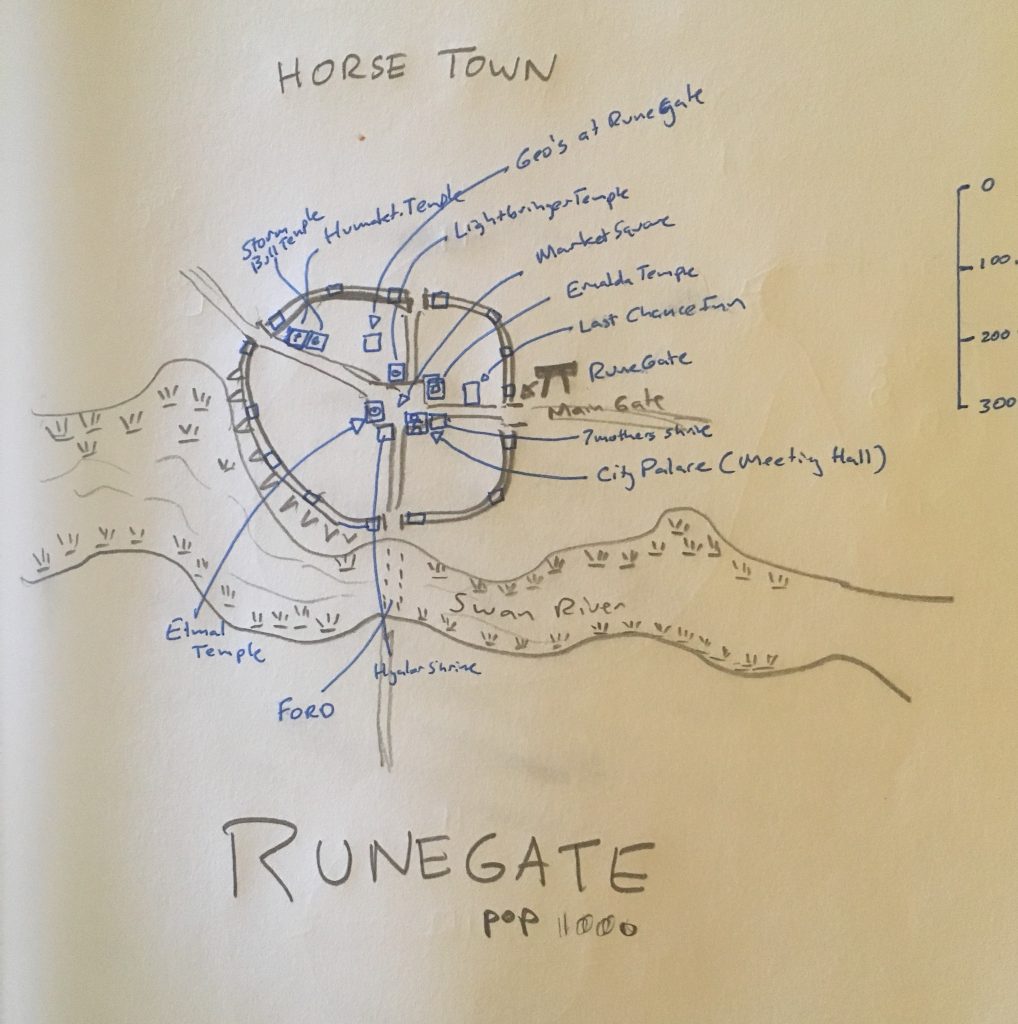 HORSE TOWN
Geo's at RuneGate
Storm
Bull Temple
Humakt Temple
Lightbringer Temple
Market Square
Ernalda Temple
Last Chance Inn
RuneGate
Main Gate
7mothers shrine
City Palace (Meeting Hall)
0
100
200
300
Swan River
Elmal
Temple
Hyalor Shrine
FORD
RUNEGATE
POP